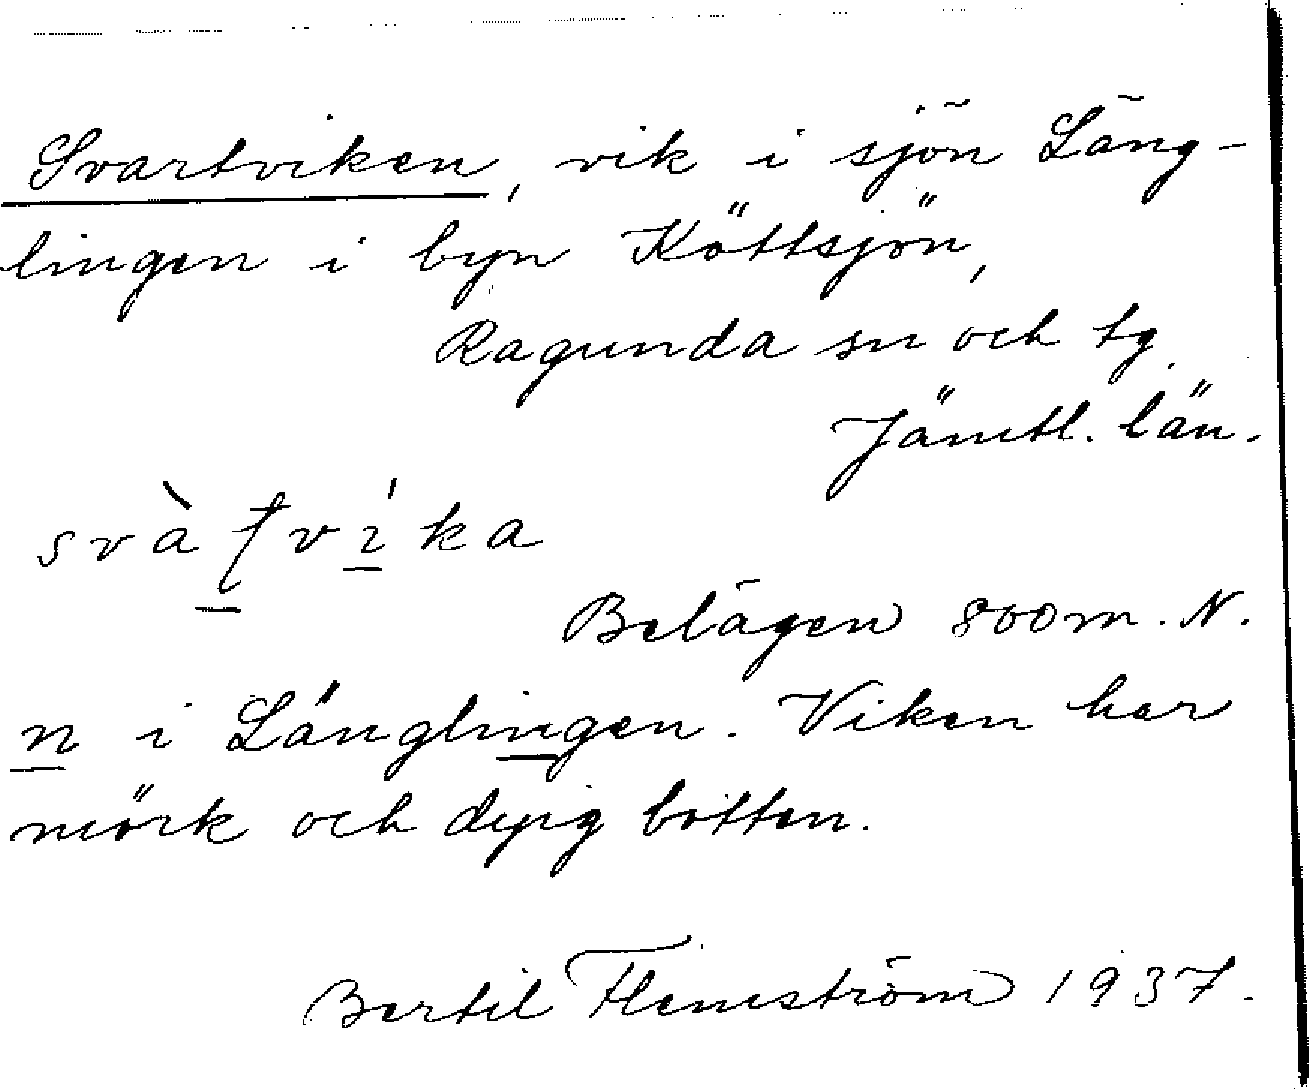 Svartviken, vik i sjön Läng-
lingen i byn Köttsjön,
Ragunda sn och tg
Jämtl. län.
Belägen 800 m. N.
n i Länglingen. Viken har
mörk och dyig botten.
Bertil Flemström 1937.